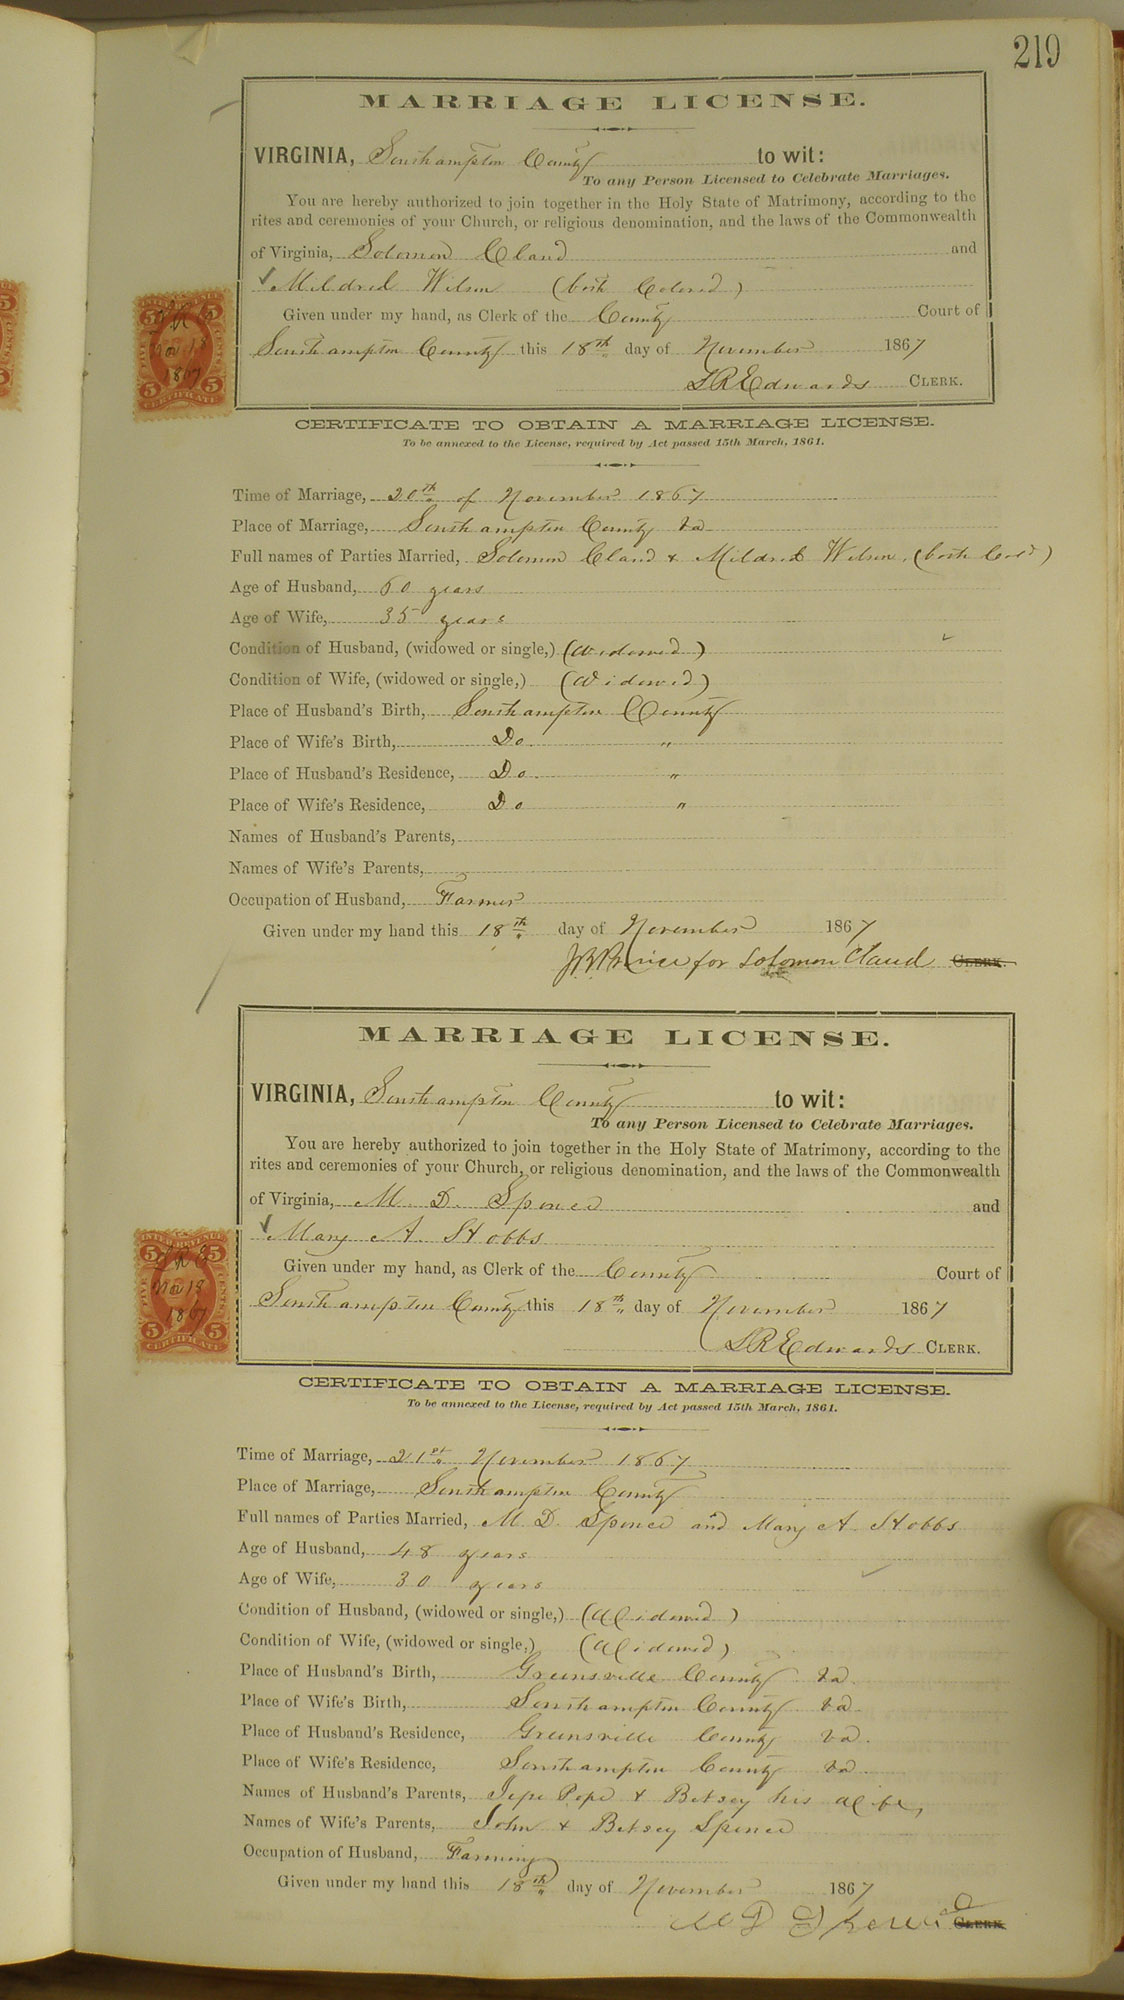 219
MARRIAGE LICENSE.
VIRGINIA, Southampton County to wit:
To any Person Licensed to Celebrate Marriages.
You are hereby authorized to join together in the Holy State of Matrimony, according to the
rites and ceremonies of your Church, or religious denomination, and the laws of the Commonwealth
of Virginia, Solomon Claud and
Mildred Wilson (both Colored)
Given under my hand, as Clerk of the County Court of
Southampton County this 18th day of November 1867
LREdwards CLERK.
INTER. REVENUE
5 5
FIVE CENTS
Nov 18
1867
5 5
CERTIFICATE
CERTIFICATE TO OBTAIN A MARRIAGE LICENSE.
To be annexed to the License, required by Act passed 15th March, 1861.
Time of Marriage, 20th of November 1867
Place of Marriage, Southampton County Va
Full names of Parties Married, Solomon Claud & Mildred Wilson, (both Cold)
Age of Husband, 60 years
Age of Wife, 35 years
Condition of Husband, (widowed or single,) (Widowed)
Condition of Wife, (widowed or single,) (Widowed)
Place of Husband's Birth, Southampton County
Place of Wife's Birth, Do. "
Place of Husband's Residence, Do. "
Place of Wife's Residence, Do "
Names of Husband's Parents,
Names of Wife's Parents,
Occupation of Husband, Farmer
Given under my hand this 18th day of November 1867
Prince for Solomon Claud CLERK.
MARRIAGE LICENSE.
VIRGINIA, Southampton County to wit:
To any Person Licensed to Celebrate Marriages.
You are hereby authorized to join together in the Holy State of Matrimony, according to the
rites and ceremonies of your Church, or religious denomination, and the laws of the Commonwealth
of Virginia, M. D. Spence and
Mary A. Stobbs
Given under my hand, as Clerk of the County Court of
Southampton County this 18th day of November 1867
LREdwards CLERK.
INTER. REVENUE
5 5
LRE
Nov 18
1867
5 5
CERTIFICATE
CERTIFICATE TO OBTAIN A MARRIAGE LICENSE.
To be annexed to the License, required by Act passed 15th March, 1861.
Time of Marriage, 21st November 1867
Place of Marriage, Southampton County
Full names of Parties Married, M. D. Spence and Mary A. Stobbs
Age of Husband, 48 years
Age of Wife, 30 years
Condition of Husband, (widowed or single,) (Widowed)
Condition of Wife, (widowed or single,) (Widowed)
Place of Husband's Birth, Greensville County Va.
Place of Wife's Birth, Southampton County Va.
Place of Husband's Residence, Greensville County Va.
Place of Wife's Residence, Southampton County Va.
Names of Husband's Parents, & Betsey his wife,
Names of Wife's Parents, John & Betsey Spence
Occupation of Husband, Farming
Given under my hand this 18th day of November 1867
M D CLERK